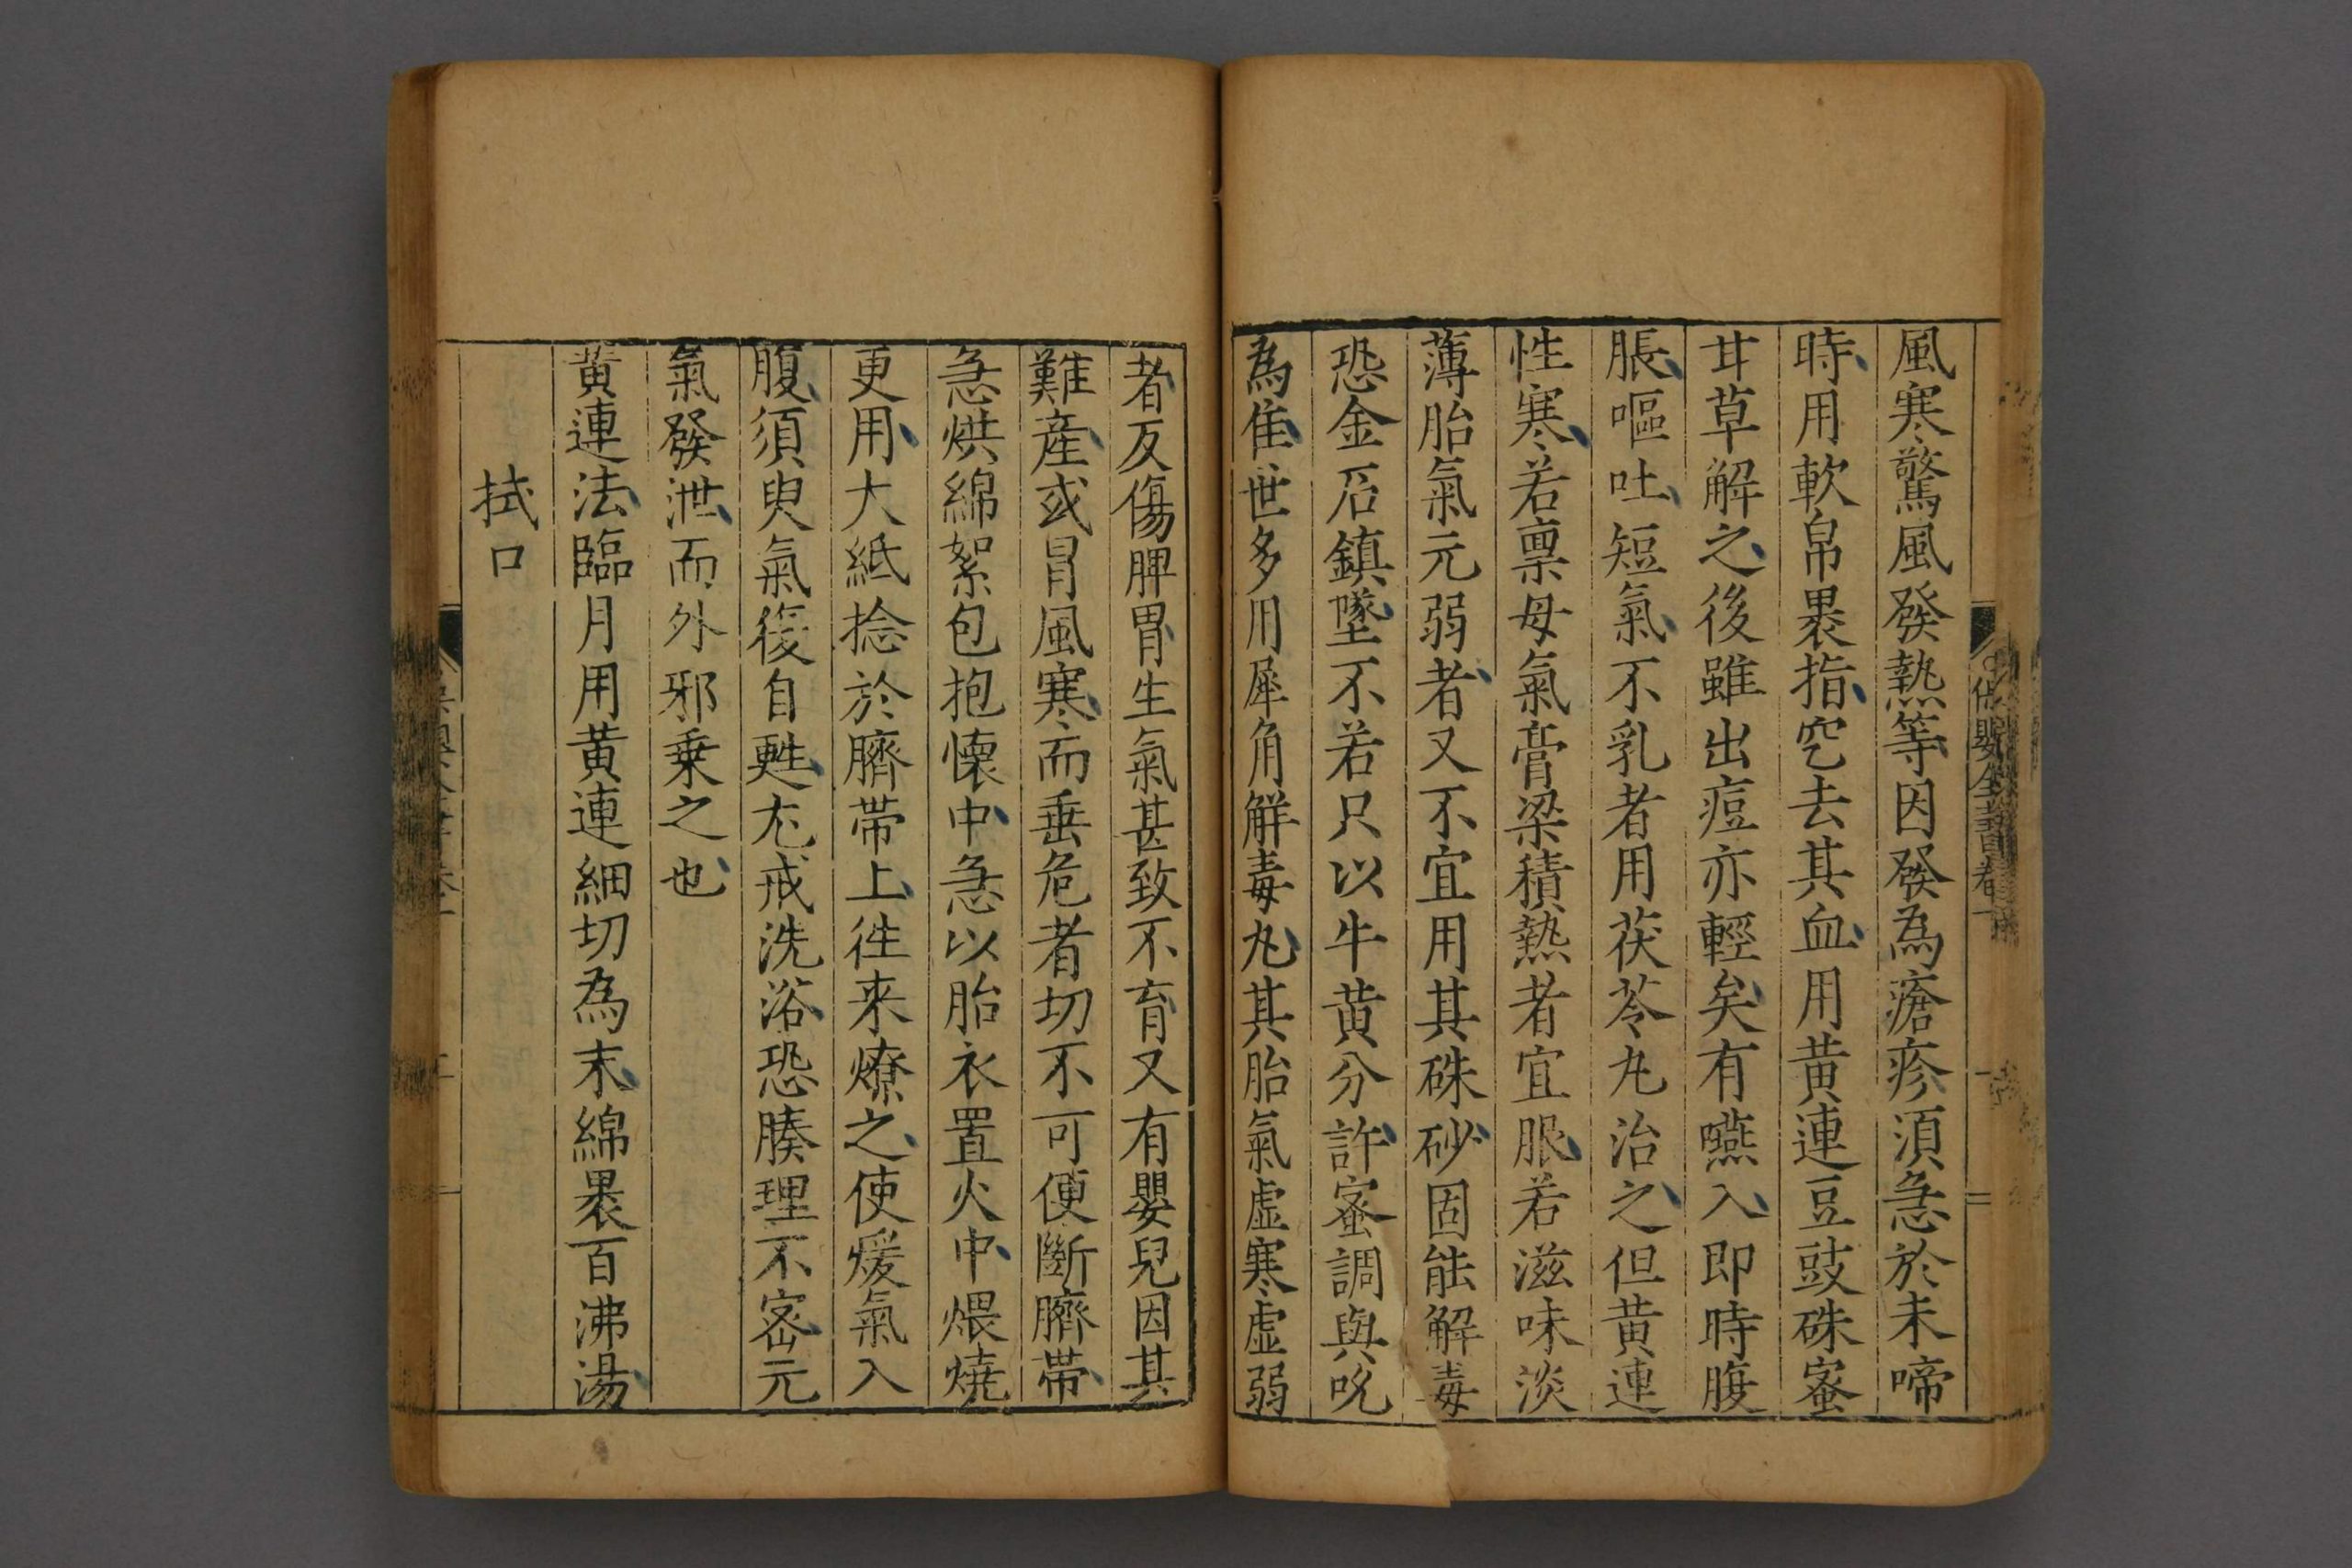 保嬰全書卷一
風寒驚風發熱等因發為瘡疹須急於未啼
時用軟帛褁指空去其血用黃連豆豉硃蜜
甘草解之後雖出痘亦輕矣有嚥入即時腹
脹嘔吐短氣不乳者用茯苓丸治之但黃連
性寒若禀母氣膏梁積熱者宜服若滋味淡
薄胎氣元弱者又不宜用其硃砂固能解毒
恐金石鎮墜不若只以牛黃分許蜜調與吮
為佳世多用犀角解毒丸其胎氣虛寒虛弱
者反傷脾胃生氣甚致不育又有嬰兒因其
難產或冒風寒而垂危者切不可便斷臍帶
急烘綿絮包抱懷中急以胎衣置火中煨燒
更用大紙捻於臍帶上徃来燎之使煖氣入
腹須臾氣復自甦尤戒洗浴恐腠理不密元
氣發泄而外邪乗之也
黃連法臨月用黃連細切為末綿褁百沸湯
拭口